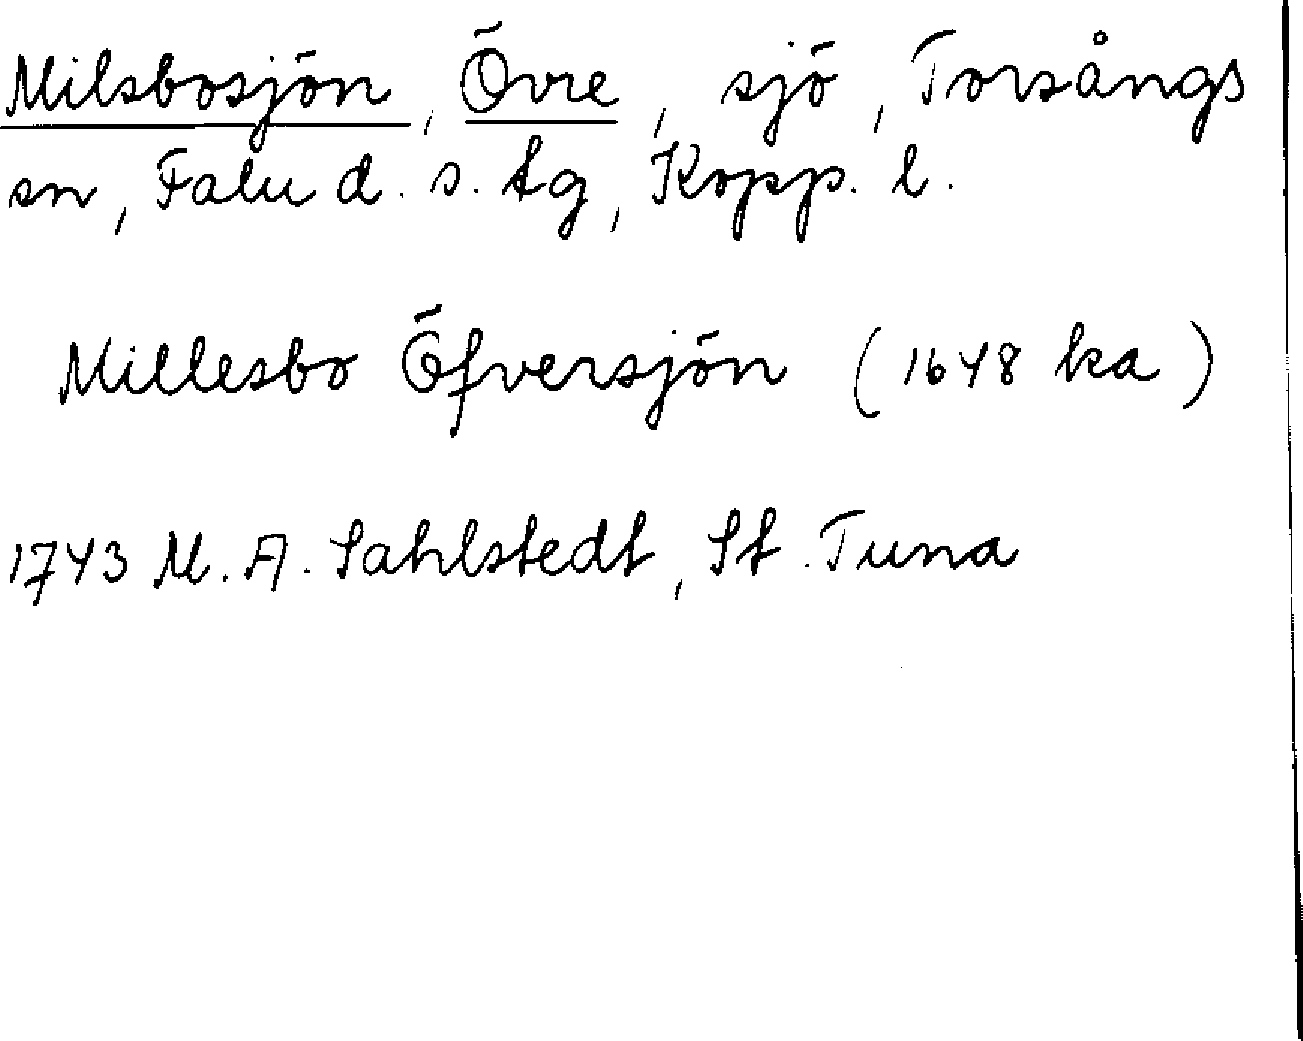 Milsbosjön, Övre, sjö, Torsångs
sn, Falu d. s. tg, Kopp. l.
Millesbo Öfversjön (1648 ka)
1743 M. A. Sahlstedt, St. Tuna